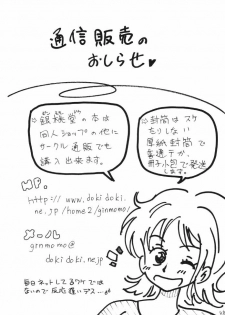 通信販売の
おしらせ♥
銀桃堂の本は
同人ショップの他に
サークル通販でも
購入出来ます。
封筒はスケ
たりしない
厚紙封筒で
普通テガ、
冊子小包で発送
します。
HP.
http://www.dokidoki.
ne.jp/home2/ginmomo/
メール
ginmomo@
dokidoki.ne.jp
毎日ネットしてるワケでは
ないので反応遅いデス…